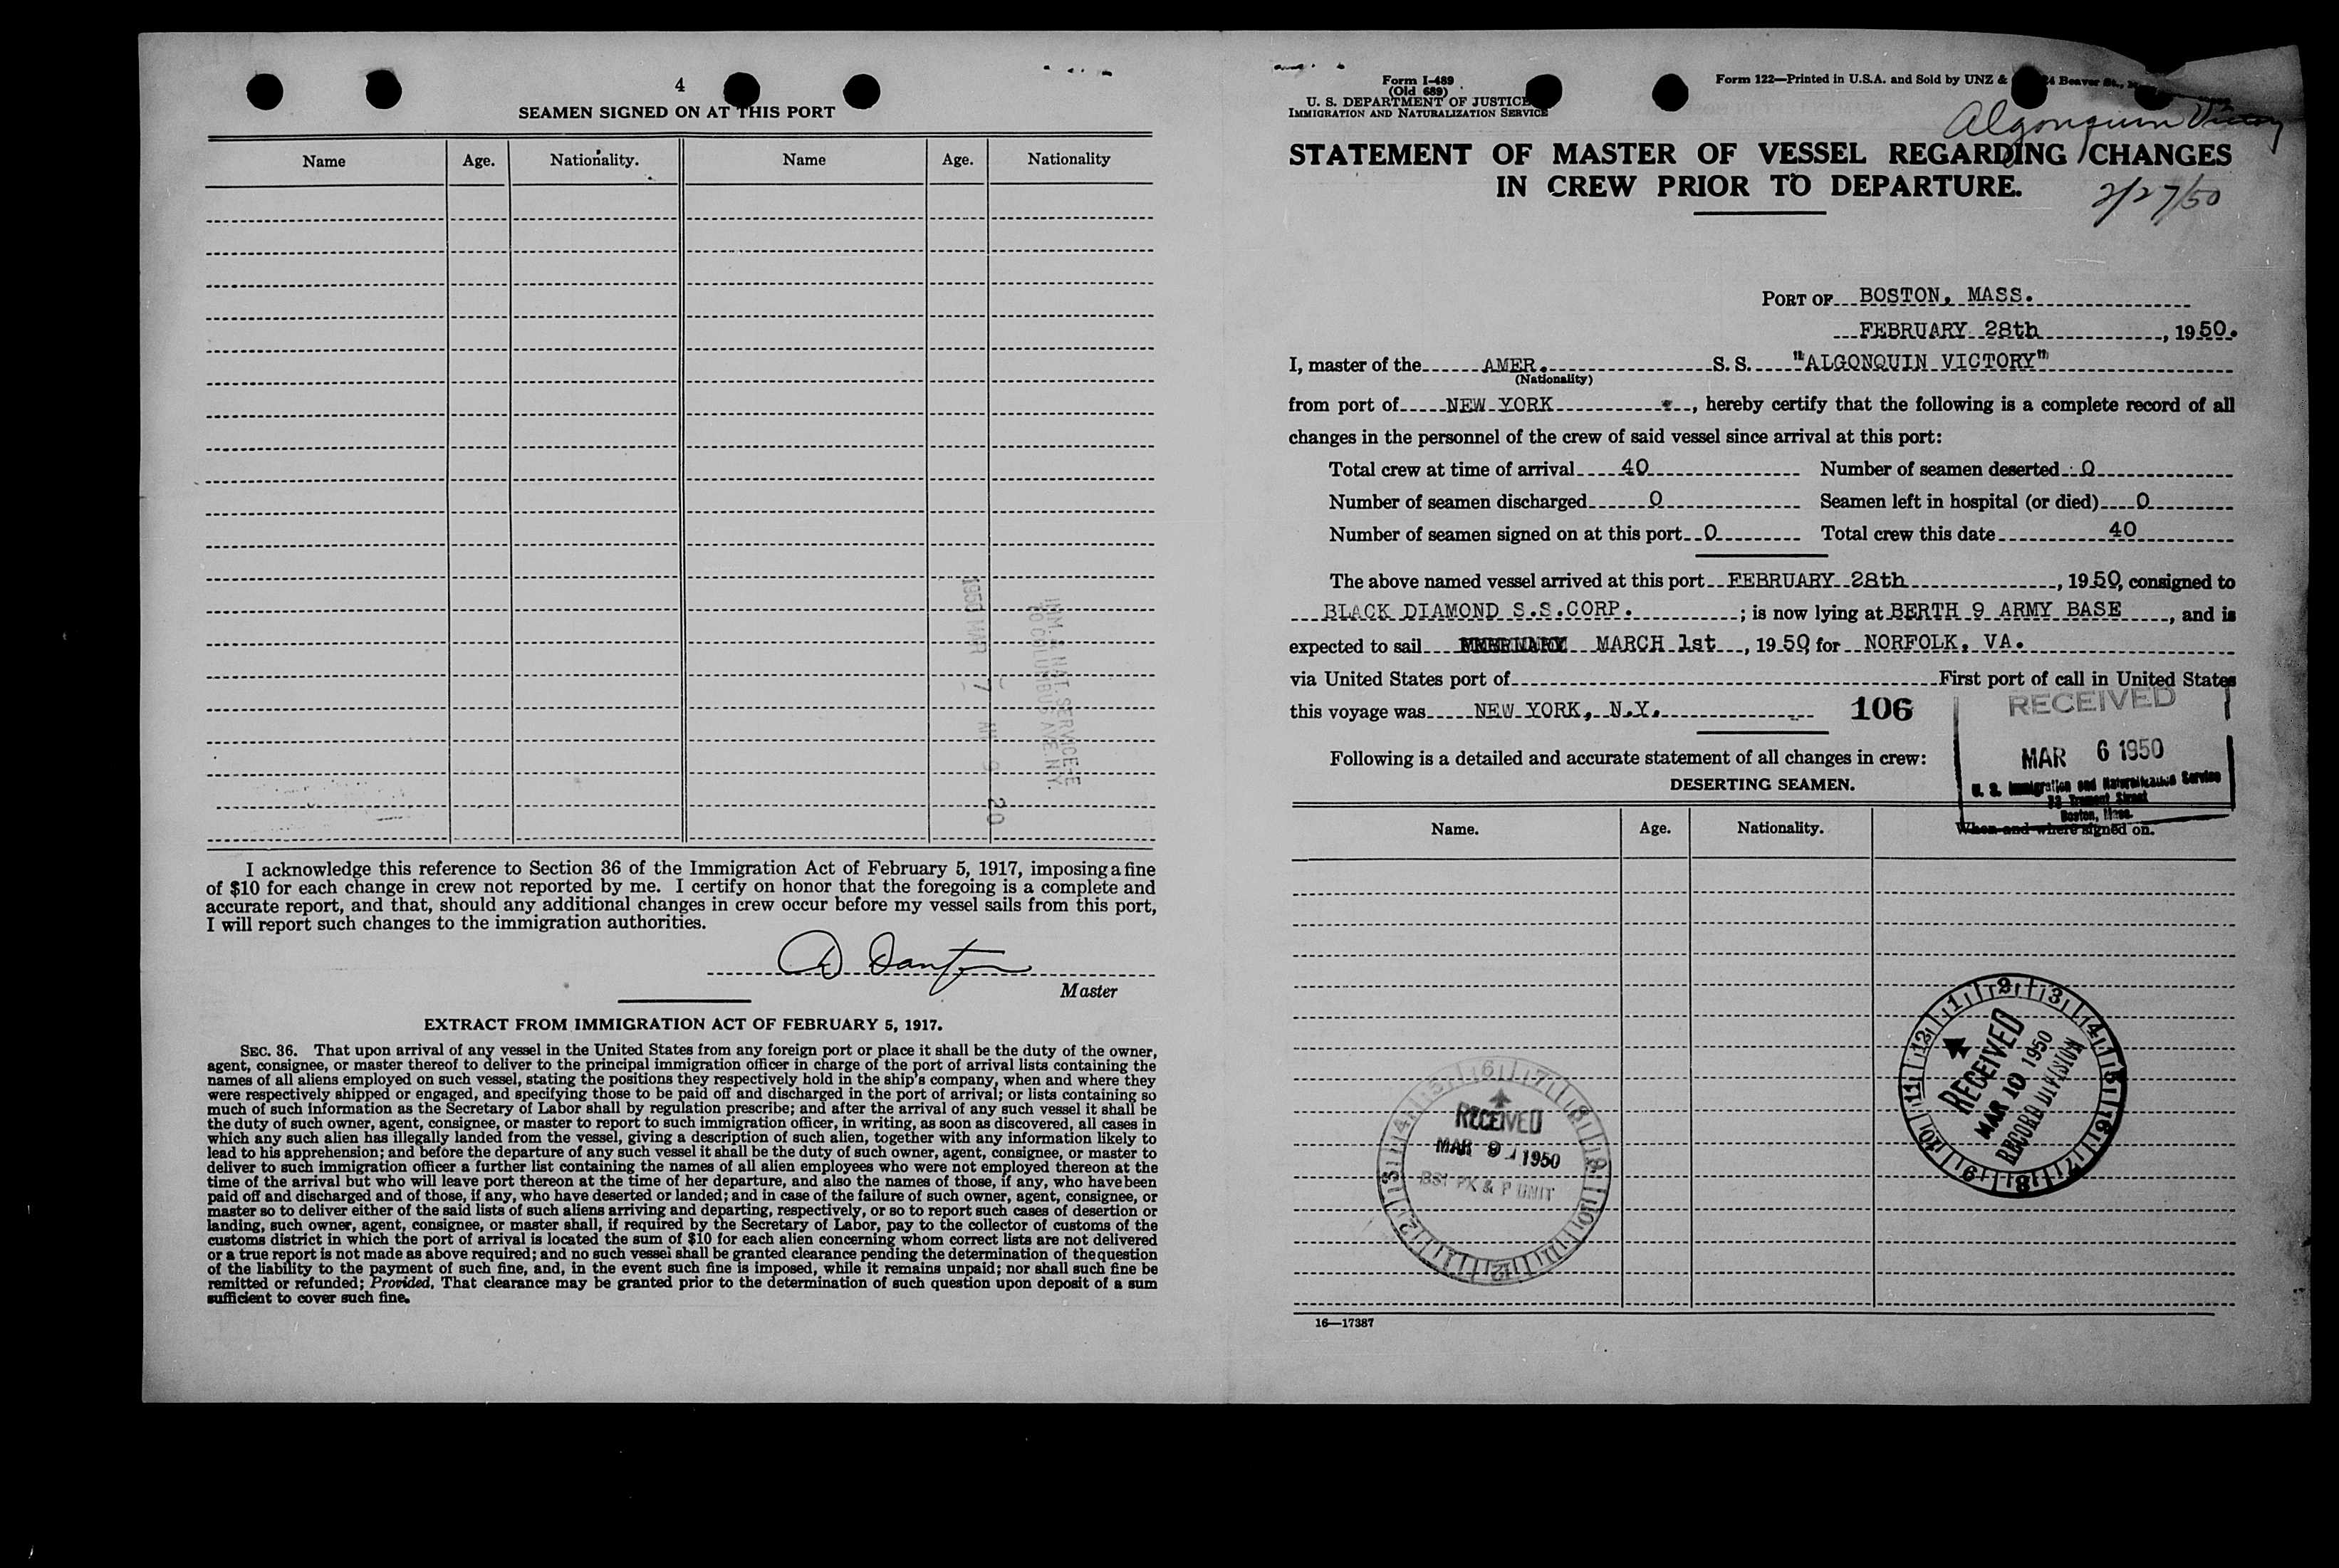 4
SEAMEN SIGNED ON AT THIS PORT
Name Age. Nationality. Name Age. Nationality
1950 MAR 7 AM 9 20
IMM. & NAT. SERVICE
70 COLUMBUS AVE. N.Y.
I acknowledge this reference to Section 36 of the Immigration Act of February 5, 1917, imposing a fine
of $10 for each change in crew not reported by me. I certify on honor that the foregoing is a complete and
accurate report, and that, should any additional changes in crew occur before my vessel sails from this port,
I will report such changes to the immigration authorities.
Master
EXTRACT FROM IMMIGRATION ACT OF FEBRUARY 5, 1917.
SEC. 36. That upon arrival of any vessel in the United States from any foreign port or place it shall be the duty of the owner,
agent, consignee, or master thereof to deliver to the principal immigration officer in charge of the port of arrival lists containing the
names of all aliens employed on such vessel, stating the positions they respectively hold in the ship's company, when and where they
were respectively shipped or engaged, and specifying those to be paid off and discharged in the port of arrival; or lists containing so
much of such information as the Secretary of Labor shall by regulation prescribe; and after the arrival of any such vessel it shall be
the duty of such owner, agent, consignee, or master to report to such immigration officer, in writing, as soon as discovered, all cases in
which any such alien has illegally landed from the vessel, giving a description of such alien, together with any information likely to
lead to his apprehension; and before the departure of any such vessel it shall be the duty of such owner, agent, consignee, or master to
deliver to such immigration officer a further list containing the names of all alien employees who were not employed thereon at the
time of the arrival but who will leave port thereon at the time of her departure, and also the names of those, if any, who have been
paid off and discharged and of those, if any, who have deserted or landed; and in case of the failure of such owner, agent, consignee, or
master so to deliver either of the said lists of such aliens arriving and departing, respectively, or so to report such cases of desertion or
landing, such owner, agent, consignee, or master shall, if required by the Secretary of Labor, pay to the collector of customs of the
customs district in which the port of arrival is located the sum of $10 for each alien concerning whom correct lists are not delivered
or a true report is not made as above required; and no such vessel shall be granted clearance pending the determination of the question
of the liability to the payment of such fine, and, in the event such fine is imposed, while it remains unpaid; nor shall such fine be
remitted or refunded; Provided, That clearance may be granted prior to the determination of such question upon deposit of a sum
sufficient to cover such fine.
Form I-489
(Old 689)
U. S. DEPARTMENT OF JUSTICE
IMMIGRATION AND NATURALIZATION SERVICE
Form 122—Printed in U.S.A. and Sold by UNZ & 24 Beaver St.,
Algonquin Victory
STATEMENT OF MASTER OF VESSEL REGARDING CHANGES
IN CREW PRIOR TO DEPARTURE.
2/27/50
PORT OF BOSTON, MASS.
FEBRUARY 28th, 1950.
I, master of the AMER. S. S. "ALGONQUIN VICTORY"
(Nationality)
from port of NEW YORK, hereby certify that the following is a complete record of all
changes in the personnel of the crew of said vessel since arrival at this port:
Total crew at time of arrival 40 Number of seamen deserted 0
Number of seamen discharged 0 Seamen left in hospital (or died) 0
Number of seamen signed on at this port 0 Total crew this date 40
The above named vessel arrived at this port FEBRUARY 28th, 1950, consigned to
BLACK DIAMOND S.S.CORP.; is now lying at BERTH 9 ARMY BASE, and is
expected to sail MARCH 1st, 1950 for NORFOLK, VA.
via United States port of First port of call in United States
this voyage was NEW YORK, N.Y. 106
RECEIVED
MAR 6 1950
U. S. Immigration and Naturalization Service
73 Tremont Street
Boston, Mass.
Following is a detailed and accurate statement of all changes in crew:
DESERTING SEAMEN.
Name. Age. Nationality. When and where signed on.
1 2 3 4 5 6 7 8 9 10 11 12
RECEIVED
MAR 10 1950
RECORD DIVISION
1 2 3 4 5 6 7 8 9 10 11 12
RECEIVED
MAR 9 1950
BSI PX & P UNIT
16—17387